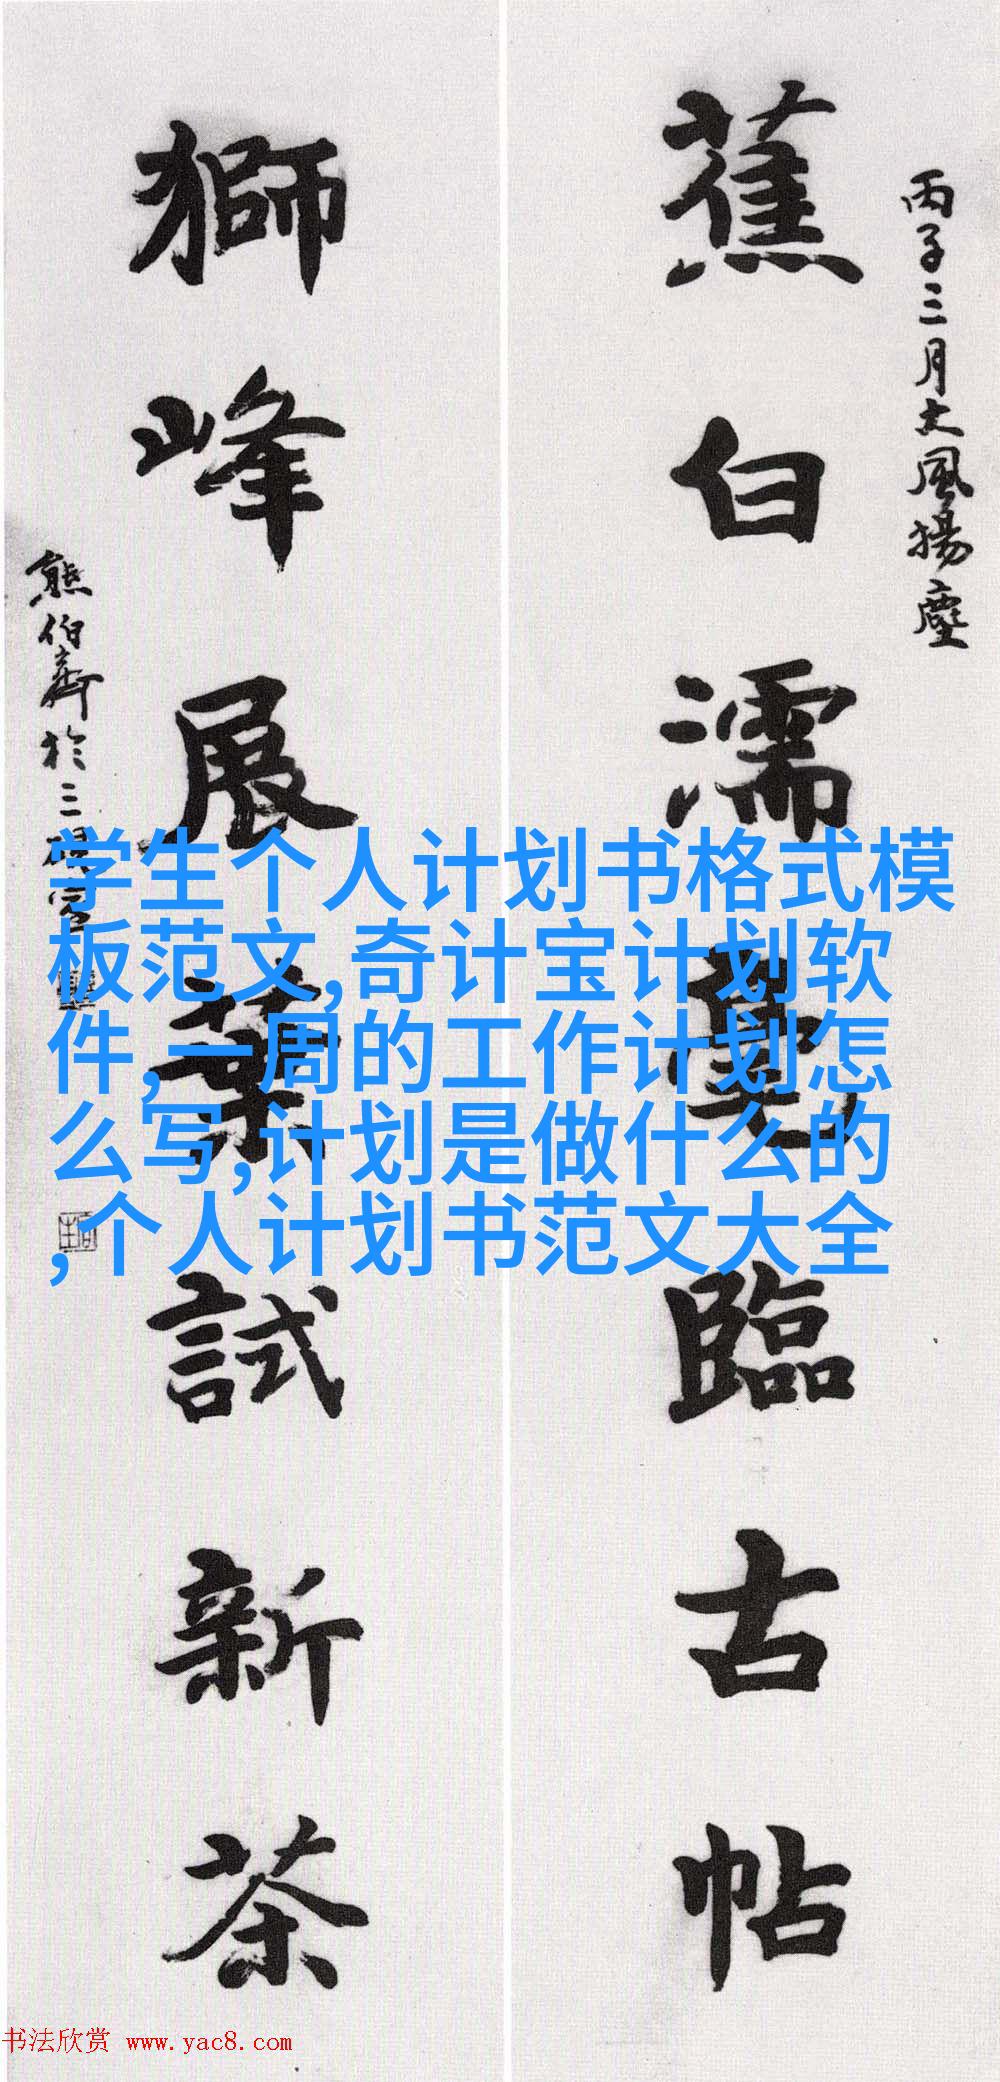 丙子三月大風揚塵
蕉白濡毫臨古帖
獅峰展葉試新茶
熊伯齊於三
学生个人计划书格式模
板范文,奇计宝计划软
件,一周的工作计划怎
么写,计划是做什么的
,个人计划书范文大全
书法欣赏 www.yac8.com